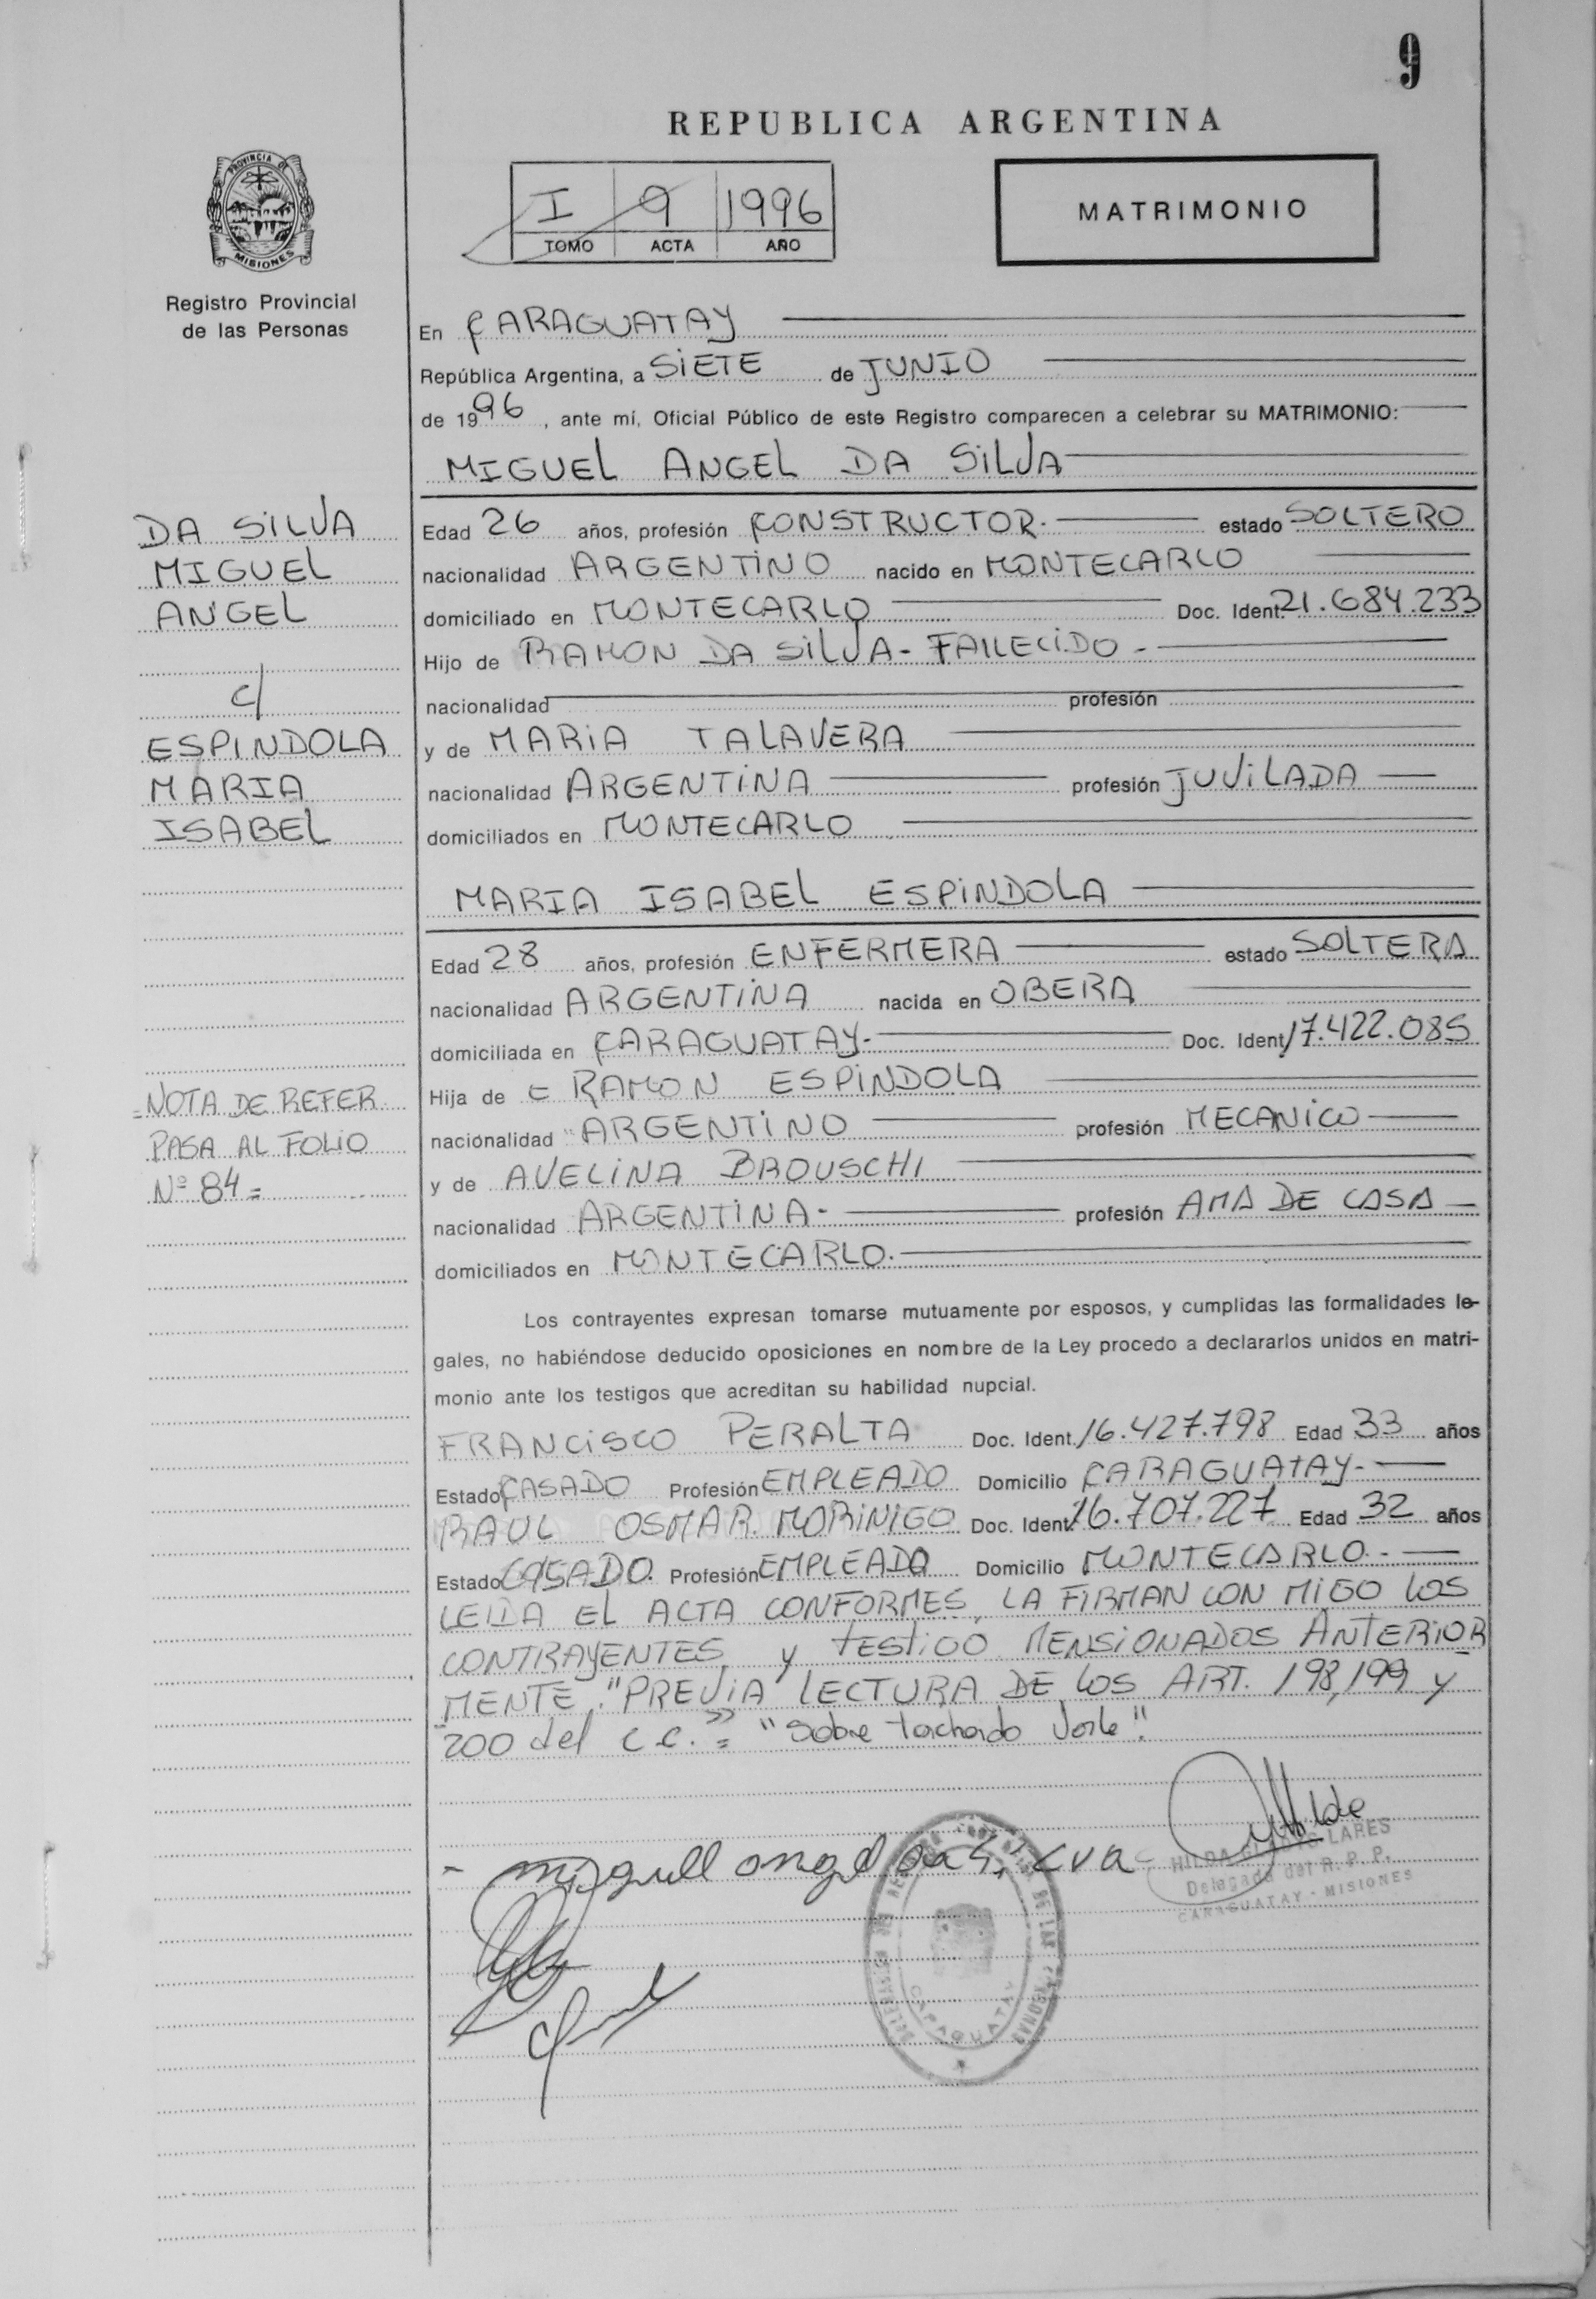 9
REPUBLICA ARGENTINA
PROVINCIA DE
MISIONES
Registro Provincial
de las Personas
I 9 1996
TOMO ACTA AÑO
MATRIMONIO
En CARAGUATAY
República Argentina, a SIETE de JUNIO
de 1996, ante mí, Oficial Público de este Registro comparecen a celebrar su MATRIMONIO:
MIGUEL ANGEL DA SILVA
DA SILVA
MIGUEL
ANGEL
c/
ESPINDOLA
MARIA
ISABEL
=NOTA DE REFER
PASA AL FOLIO
Nº 84=
Edad 26 años, profesión CONSTRUCTOR.- estado SOLTERO
nacionalidad ARGENTINO nacido en MONTECARLO
domiciliado en MONTECARLO Doc. Ident. 21.684.233
Hijo de RAMON DA SILVA - FALLECIDO -
nacionalidad profesión
y de MARIA TALAVERA
nacionalidad ARGENTINA profesión JUVILADA
domiciliados en MONTECARLO
MARIA ISABEL ESPINDOLA
Edad 28 años, profesión ENFERMERA estado SOLTERA
nacionalidad ARGENTINA nacida en OBERA
domiciliada en CARAGUATAY.- Doc. Ident. 17.422.085
Hija de RAMON ESPINDOLA
nacionalidad ARGENTINO profesión MECANICO
y de AVELINA BROUSCHI
nacionalidad ARGENTINA- profesión AMA DE CASA
domiciliados en MONTECARLO.
Los contrayentes expresan tomarse mutuamente por esposos, y cumplidas las formalidades le-
gales, no habiéndose deducido oposiciones en nombre de la Ley procedo a declararlos unidos en matri-
monio ante los testigos que acreditan su habilidad nupcial.
FRANCISCO PERALTA Doc. Ident. 16.427.798 Edad 33 años
Estado CASADO Profesión EMPLEADO Domicilio CARAGUATAY.-
RAUL OSMAR MORINIGO Doc. Ident. 16.707.227 Edad 32 años
Estado CASADO. Profesión EMPLEADO Domicilio MONTECARLO.-
LEIDA EL ACTA CONFORMES, LA FIRMAN CON MIGO LOS
CONTRAYENTES, y TESTIGO MENSIONADOS ANTERIOR
MENTE. "PREVIA LECTURA DE LOS ART. 198,199 y
200 del C.C." = "Sobre tachado Vale".
miguell angel da silva
HILDA LARES
Delegada del R. P. P.
CARAGUATAY - MISIONES
CARAGUATAY